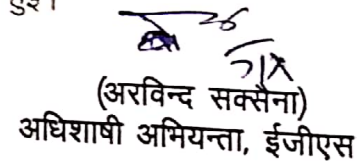 हुए।
(अरविन्द सक्सैना)
अधिशाषी अभियन्ता, ईजीएस